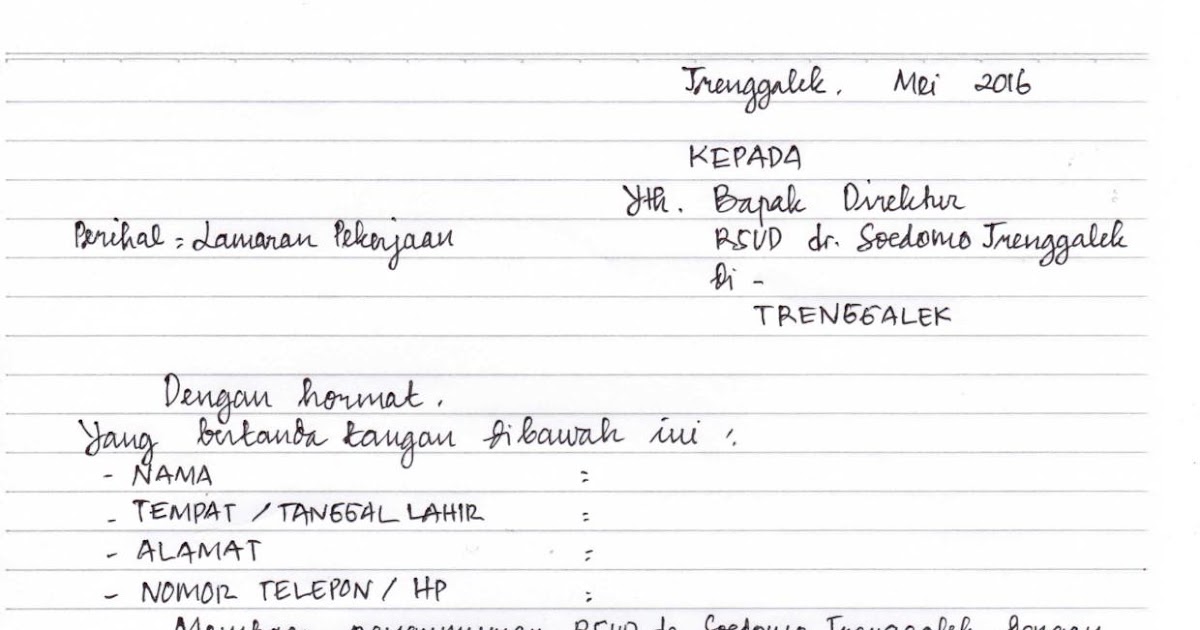 Trenggalek, Mei 2016
KEPADA
Yth. Bapak Direktur
Perihal = Lamaran Pekerjaan RSUD dr. Soedomo Trenggalek
di -
TRENGGALEK
Dengan hormat,
Yang bertanda tangan dibawah ini :
- NAMA :
- TEMPAT / TANGGAL LAHIR :
- ALAMAT :
- NOMOR TELEPON / HP :
pengumuman RSUD dr Soedomo Trenggalek dengan